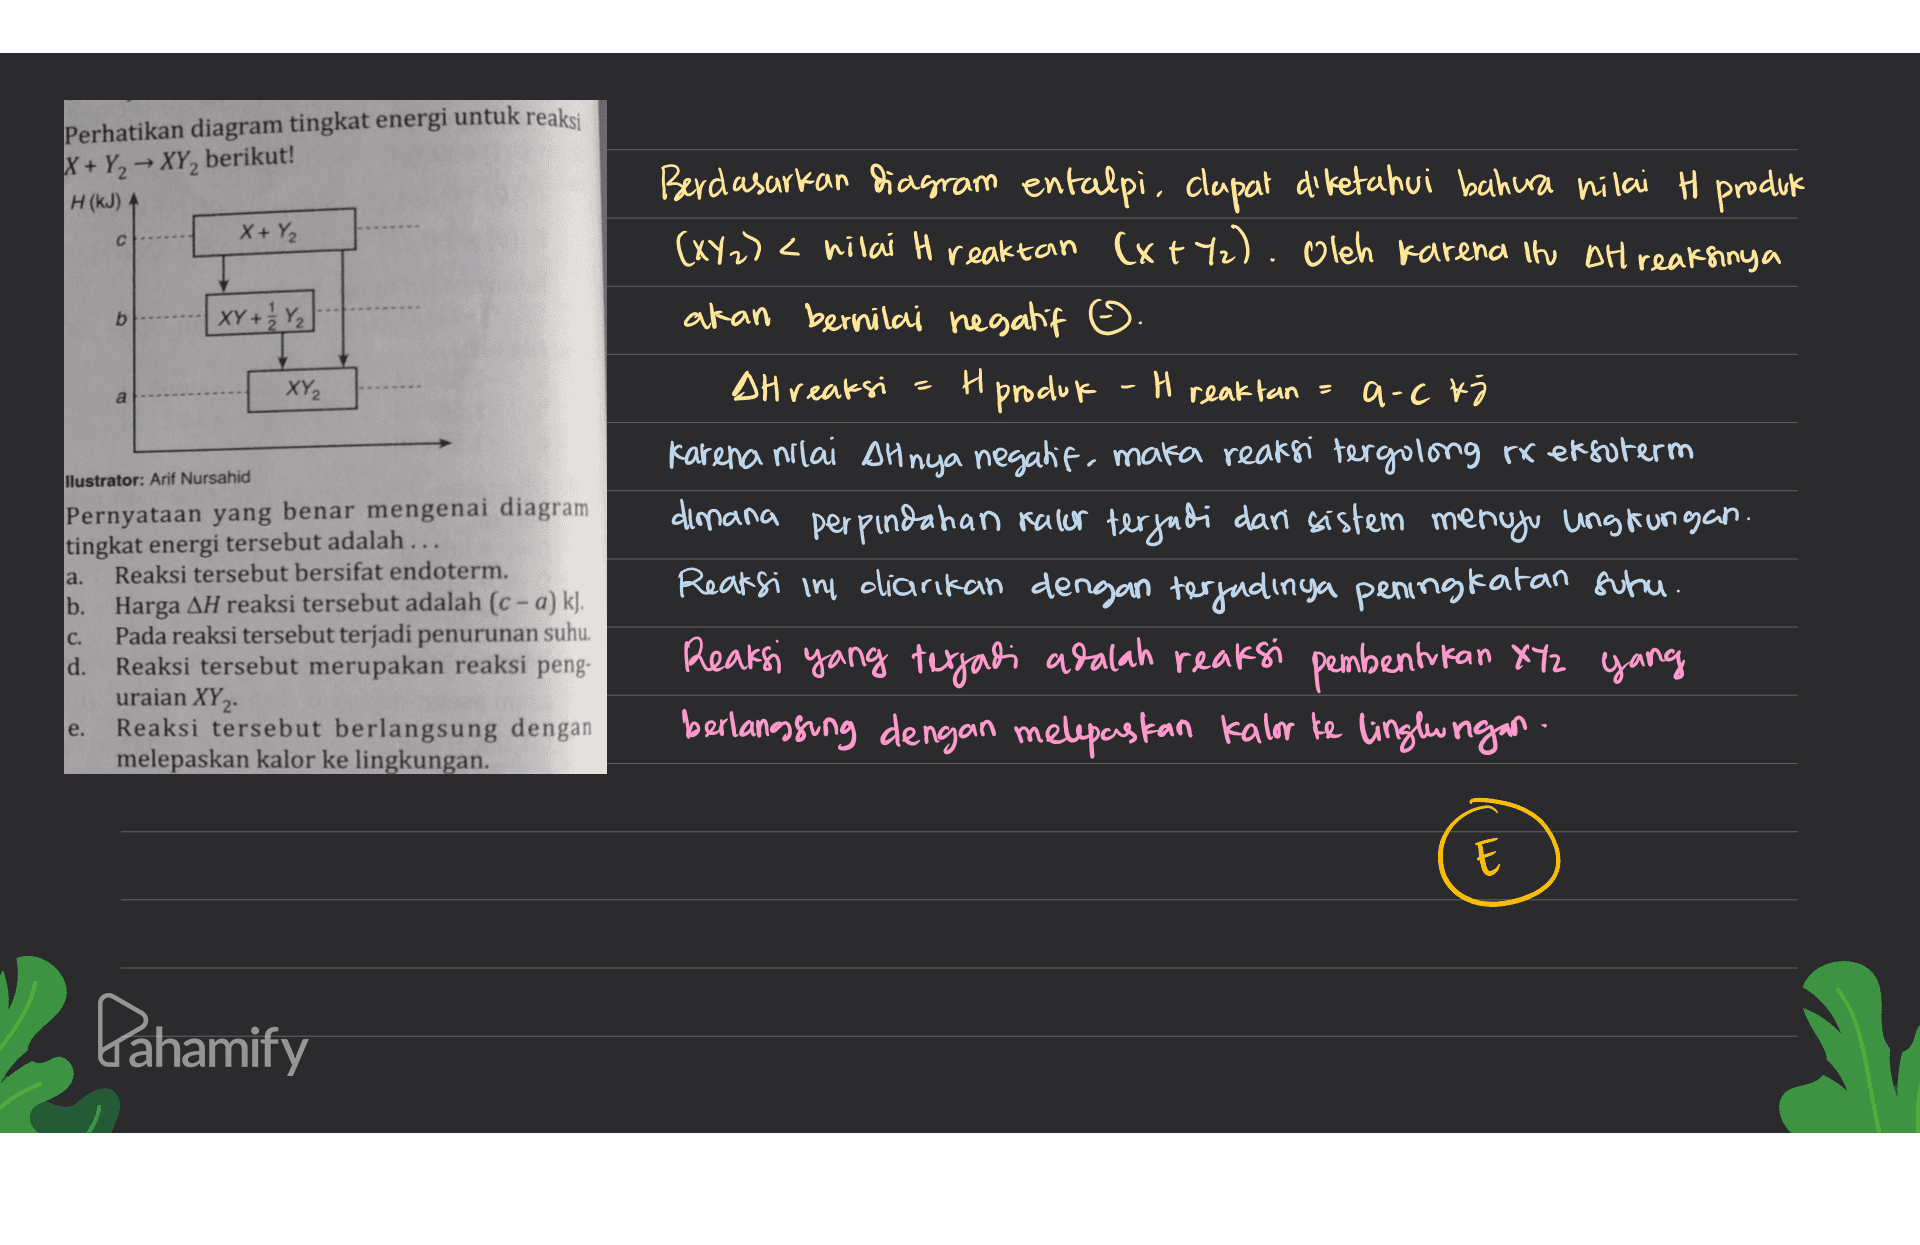 Perhatikan diagram tingkat energi untuk reaksi
X + Y₂ → XY₂ berikut!
H (kJ)
c
X + Y₂
b
XY + ½ Y₂
a
XY₂
Ilustrator: Arif Nursahid
Pernyataan yang benar mengenai diagram
tingkat energi tersebut adalah . . .
a. Reaksi tersebut bersifat endoterm.
b. Harga ΔH reaksi tersebut adalah (c – a) kJ.
c. Pada reaksi tersebut terjadi penurunan suhu.
d. Reaksi tersebut merupakan reaksi peng-
uraian XY₂.
e. Reaksi tersebut berlangsung dengan
melepaskan kalor ke lingkungan.
Berdasarkan diagram entalpi, dapat diketahui bahwa nilai H produk
(XY₂) < nilai H reaktan (X + Y₂). Oleh karena itu ΔH reaksinya
akan bernilai negatif (-).
ΔH reaksi = H produk - H reaktan = a - c kJ
Karena nilai ΔHnya negatif, maka reaksi tergolong rx eksoterm
dimana perpindahan kalor terjadi dari sistem menuju lingkungan.
Reaksi ini diartikan dengan terjadinya peningkatan suhu.
Reaksi yang terjadi adalah reaksi pembentukan XY₂ yang
berlangsung dengan melepaskan kalor ke lingkungan.
E
Pahamify